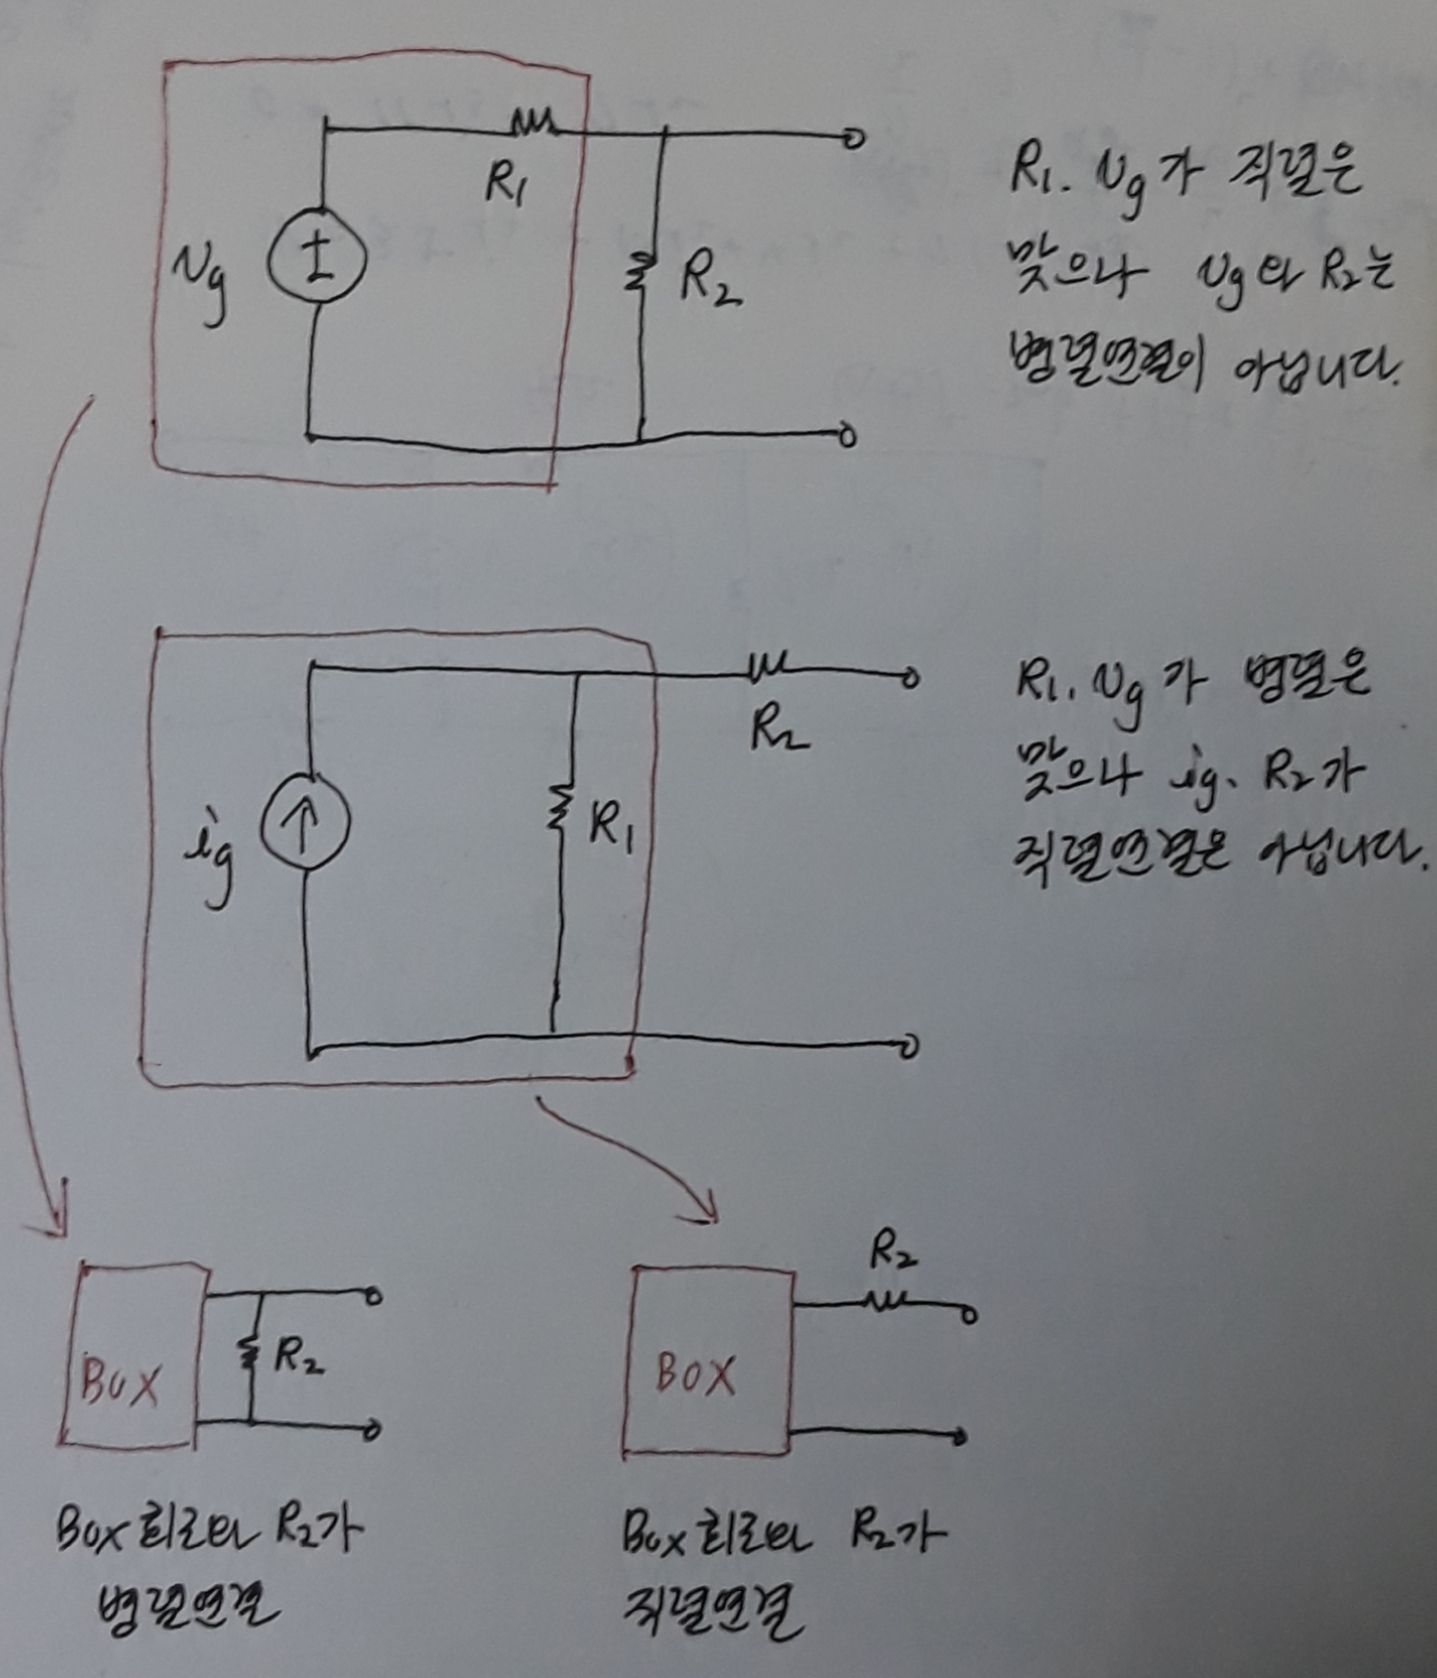 R1
Vg
±
R2
R1. Vg가 직렬은
맞으나 Vg와 R2는
병렬연결이 아닙니다.
R2
ig
R1
R1. Vg가 병렬은
맞으나 ig. R2가
직렬연결은 아닙니다.
BOX
R2
Box회로와 R2가
병렬연결
R2
BOX
Box회로와 R2가
직렬연결